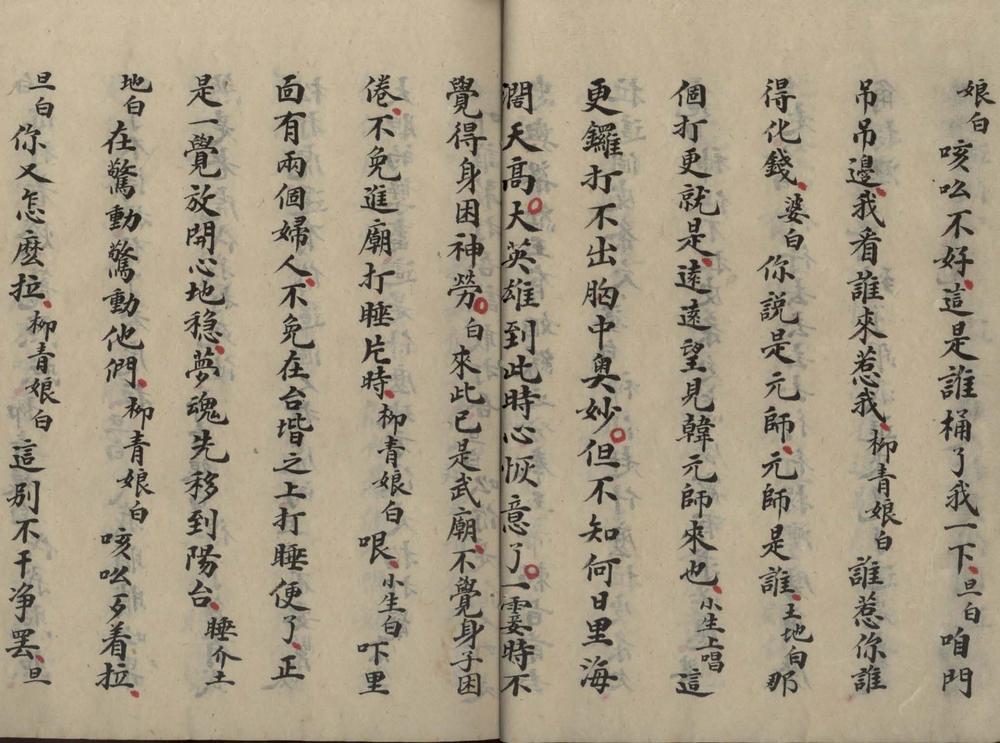 娘白咳吆不好這是誰桶了我一下旦白咱門
吊吊邊我看誰來惹我柳青娘白誰惹你誰
得化錢婆白你説是元師元師是誰土地白那
個打更就是遠遠望見韓元師來也小生上唱這
更鑼打不出胸中奥妙但不知何日里海
濶天高大英雄到此時心恢意了一霎時不
覺得身困神勞白來此已是武廟不覺身子困
倦不免進廟打睡片時柳青娘白哏小生白吓里
面有兩個婦人不免在台堦之上打睡便了正
是一覺放開心地穩夢魂先移到陽台睡介土
地白在驚動驚動他們柳青娘白咳吆歹着拉
旦白你又怎麽拉柳青娘白這别不干净罢旦